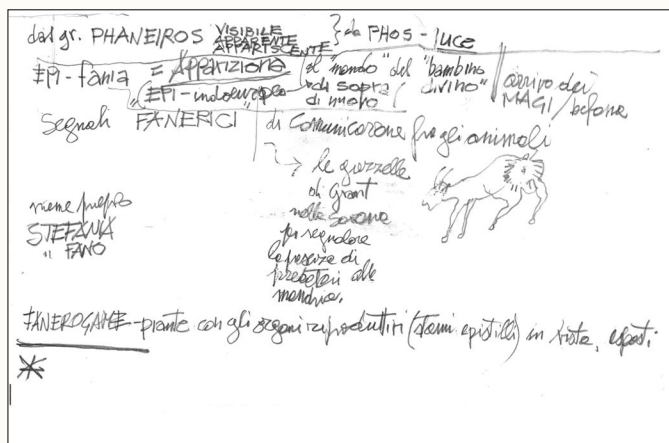 dal gr. PHANEIROS VISIBILE APPARENTE APPARISCENTE } da PHOS - luce
EPI - fania = Apparizione al "mondo" del "bambino divino" arrivo dei MAGI / befana
"EPI - indoeuropeo di sopra di nuovo
Segnali FANERICI di Comunicazione fra gli animali
le gazzelle
di Grant
nella savana
per segnalare
la presenza di
predatori alla
mandria.
nome proprio
STEFANIA
" FANO
FANEROGAME - piante con gli organi riproduttivi (stami e pistilli) in vista, esposti